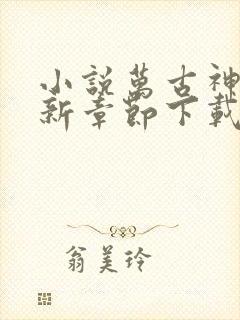 小説萬古神
新章節下載
翁美玲